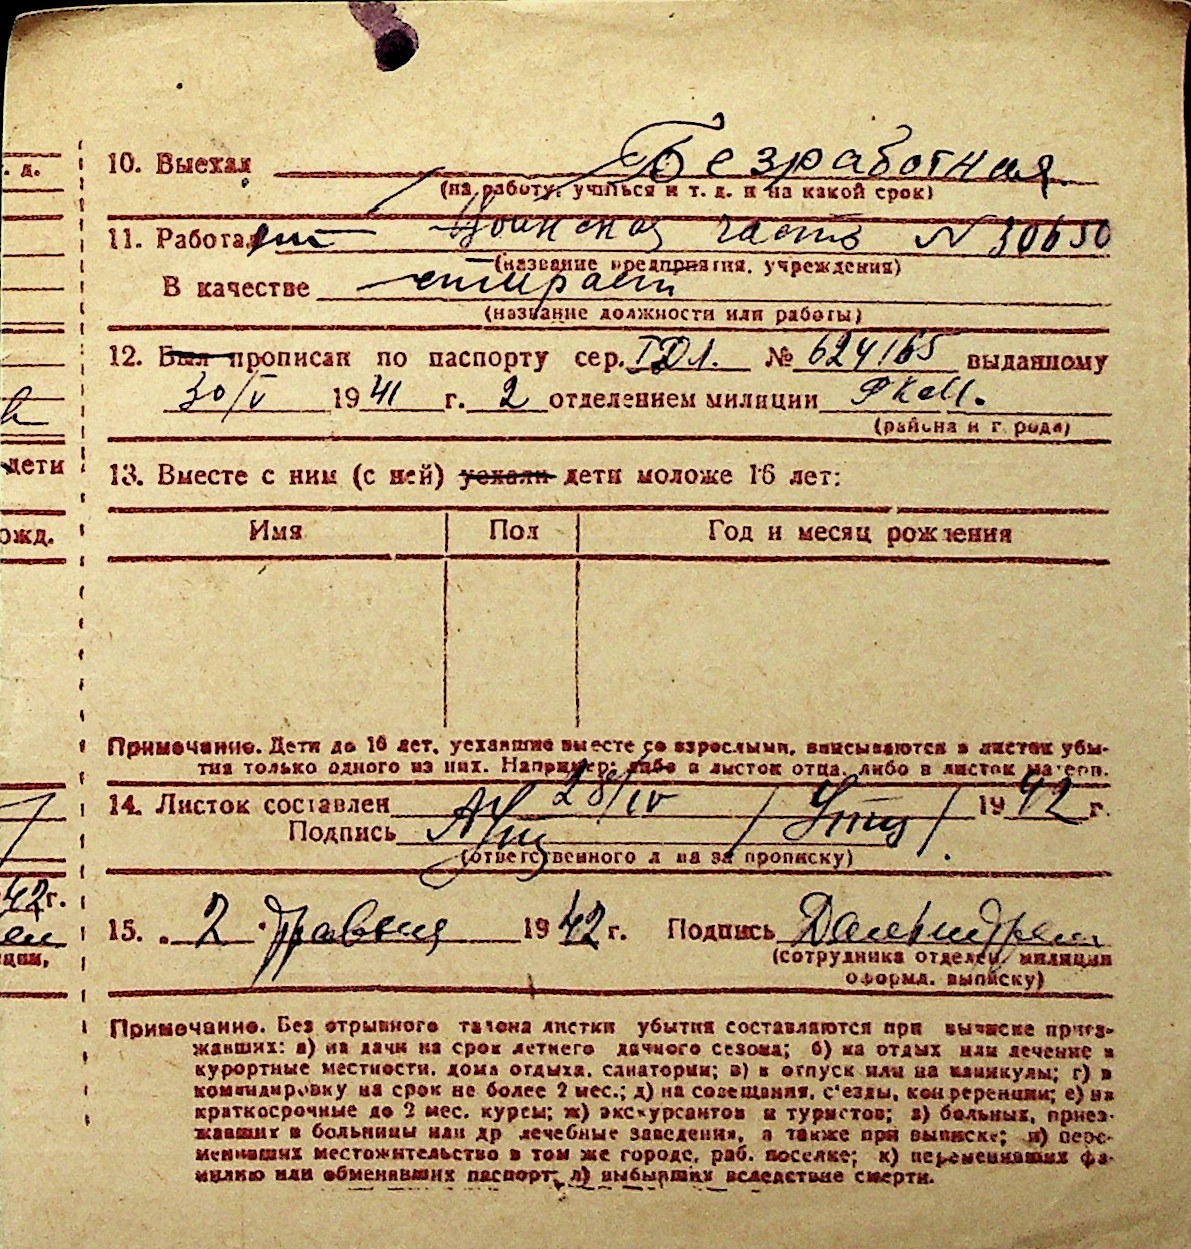 10. Выехал Безработная
(на работу, учиться и т. д. и на какой срок)
11. Работает Воинская часть N 30650
(название предприятия, учреждения)
В качестве стирает
(название должности или работы)
12. Был прописан по паспорту сер. IДЛ. № 624165 выданному
30/V 1941 г. 2 отделением милиции РКМ.
(района и города)
13. Вместе с ним (с ней) уехали дети моложе 16 лет:
Имя Пол Год и месяц рождения
Примечание. Дети до 16 лет, уехавшие вместе со взрослыми, вписываются в листок убы-
тия только одного из них. Например: либо в листок отца, либо в листок матери.
14. Листок составлен 28/IV 1942 г.
Подпись
(ответственного лица за прописку)
15. „ 2 " Травня 1942 г. Подпись
(сотрудника отделен. милиции
оформл. выписку)
Примечание. Без отрывного талона листки убытия составляются при выписке приез-
жавших: а) на дачи на срок летнего дачного сезона; б) на отдых или лечение в
курортные местности, дома отдыха, санатории; в) в отпуск или на каникулы; г) в
командировку на срок не более 2 мес.; д) на совещания, с'езды, конференции; е) на
краткосрочные до 2 мес. курсы; ж) экскурсантов и туристов; з) больных, приез-
жавших в больницы или др лечебные заведения, а также при выписке; и) пере-
менивших местожительство в том же городе, раб. поселке; к) переменивших фа-
милию или обменявших паспорт; л) выбывших вследствие смерти.
т. д.
дети
рожд.
42 г.
ции,